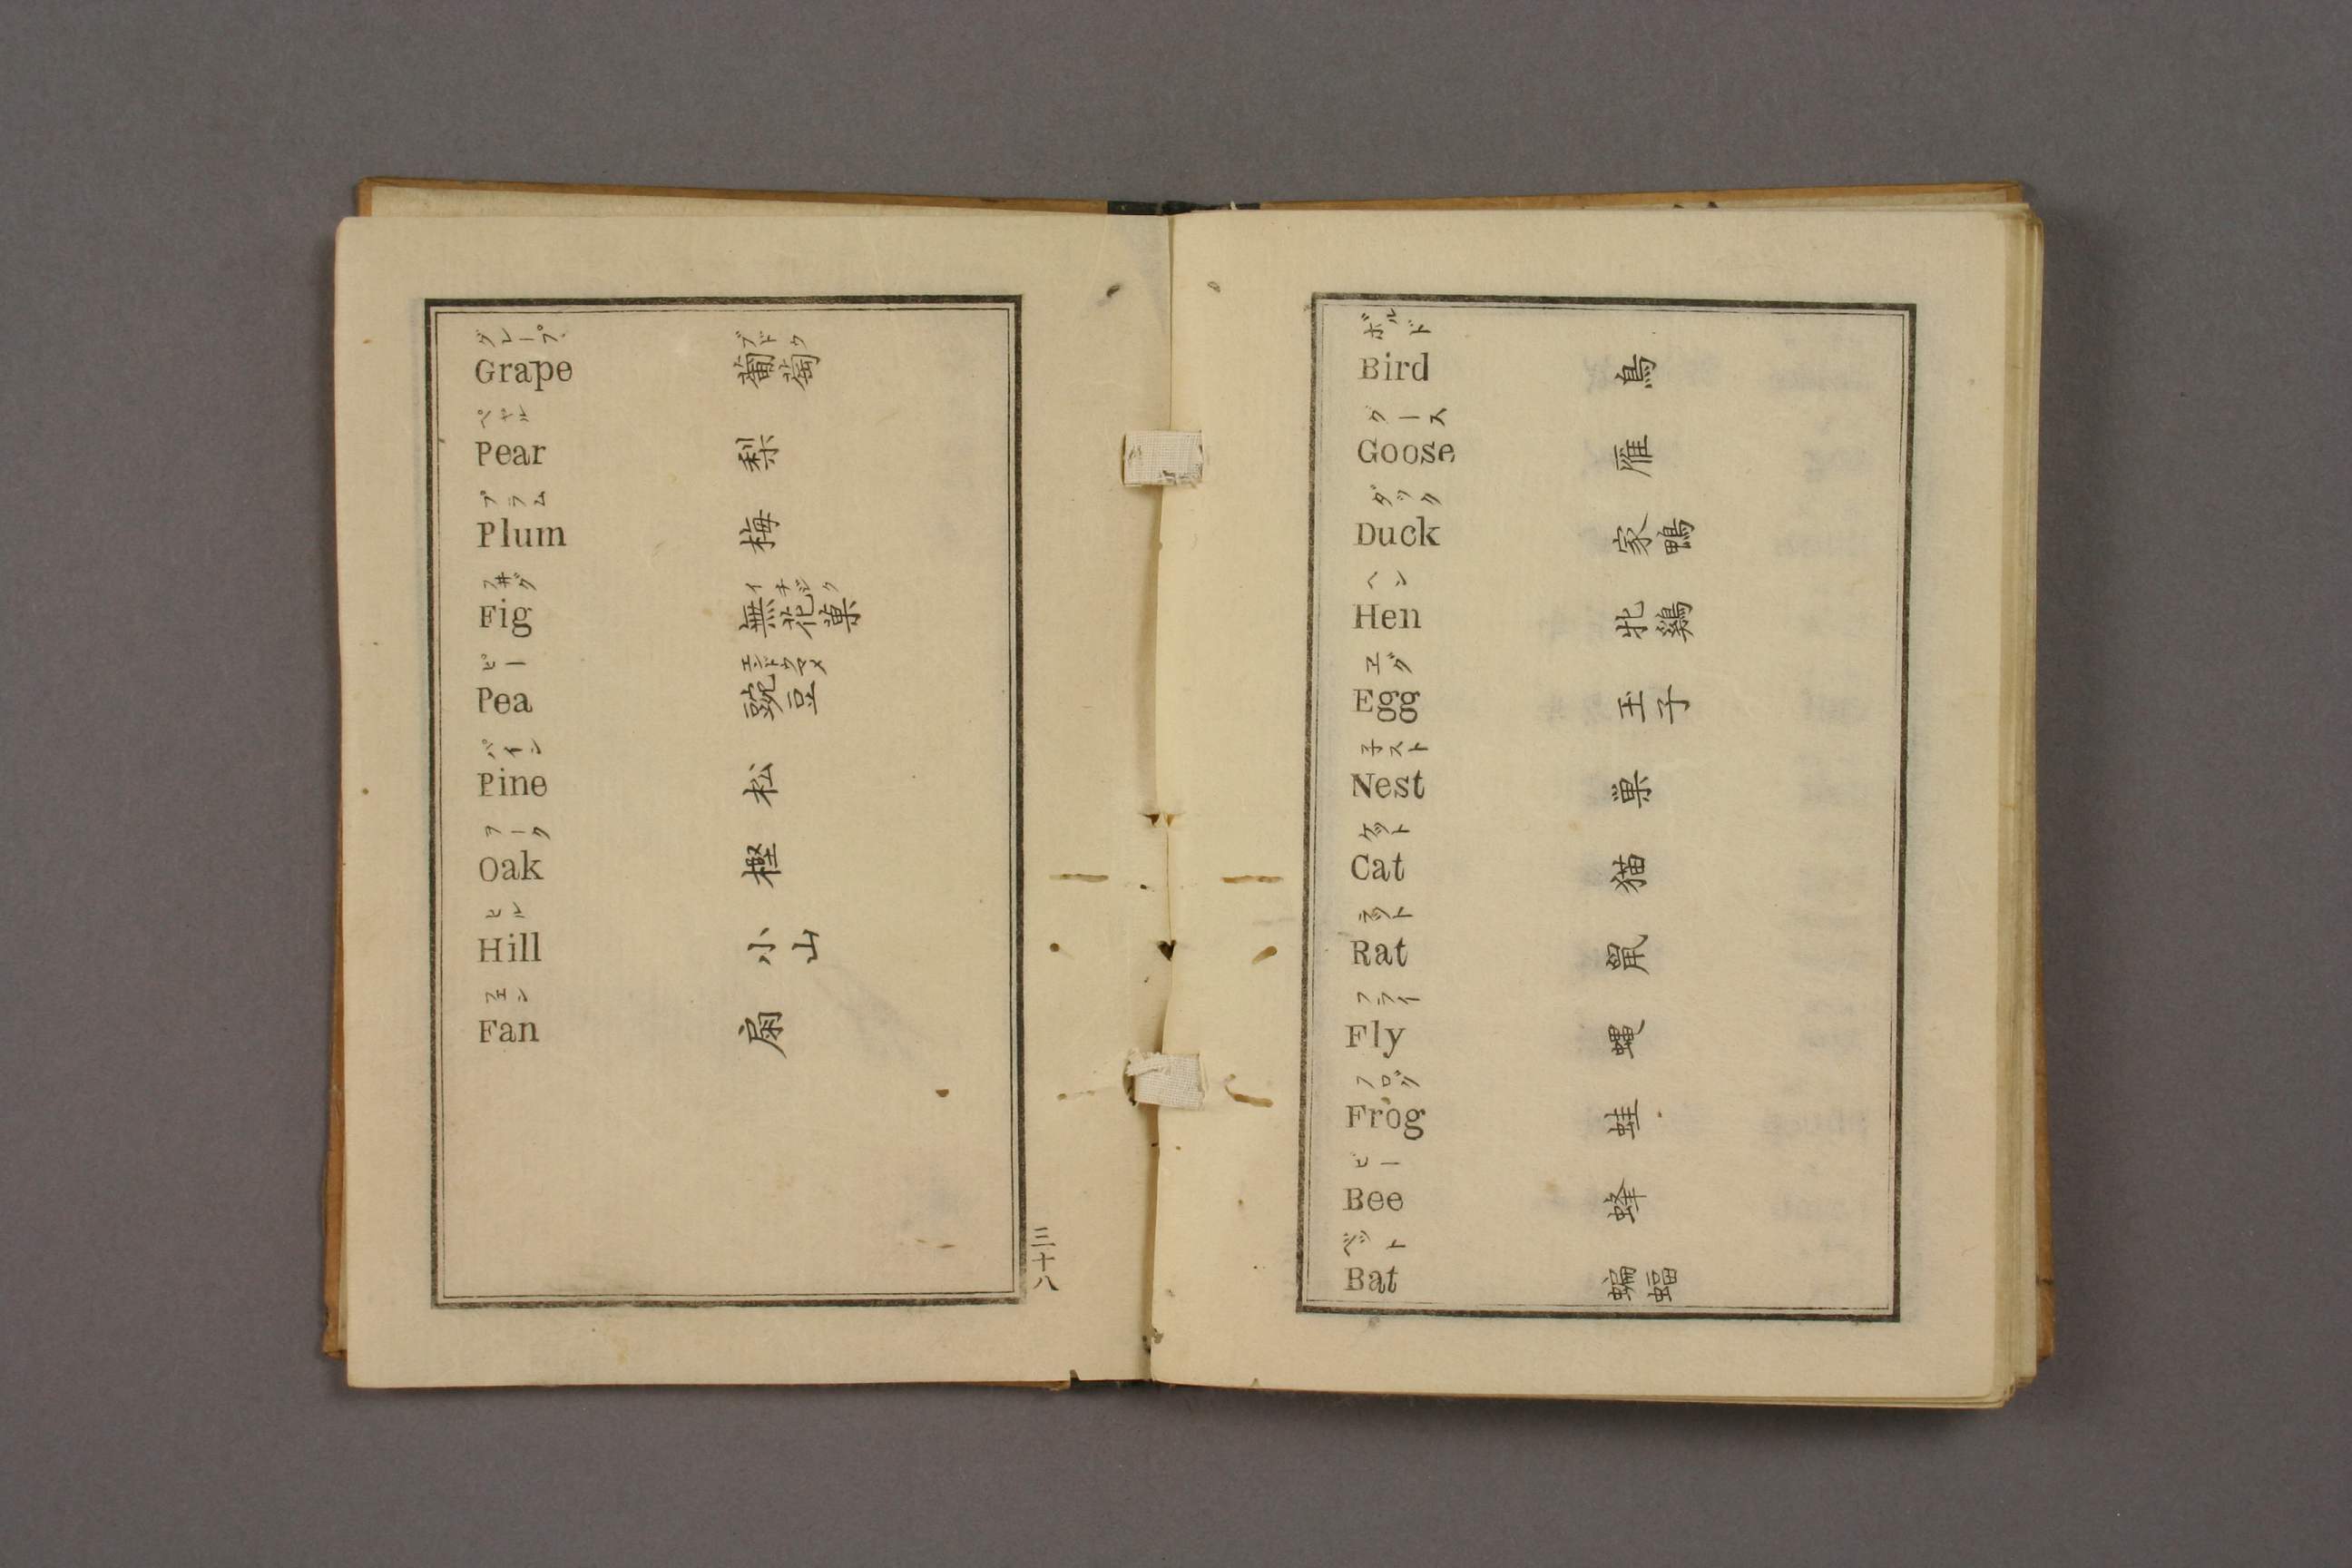 グレープ ブドウ
Grape 葡萄
ペヤル
Pear 梨
プラム
Plum 梅
フ井グ イチジク
Fig 無花菓
ピー エンドウマメ
Pea 豌豆
パイン
Pine 松
ヲーク
Oak 樫
ヒル
Hill 小山
フエン
Fan 扇
三十八
ボルド
Bird 鳥
グース
Goose 雁
ダック
Duck 家鴨
ヘン
Hen 牝鷄
ヱグ
Egg 玉子
子スト
Nest 巣
ケット
Cat 猫
ラット
Rat 鼠
フライ
Fly 蝿
フログ
Frog 蛙
ビー
Bee 蜂
ベット
Bat 蝙蝠